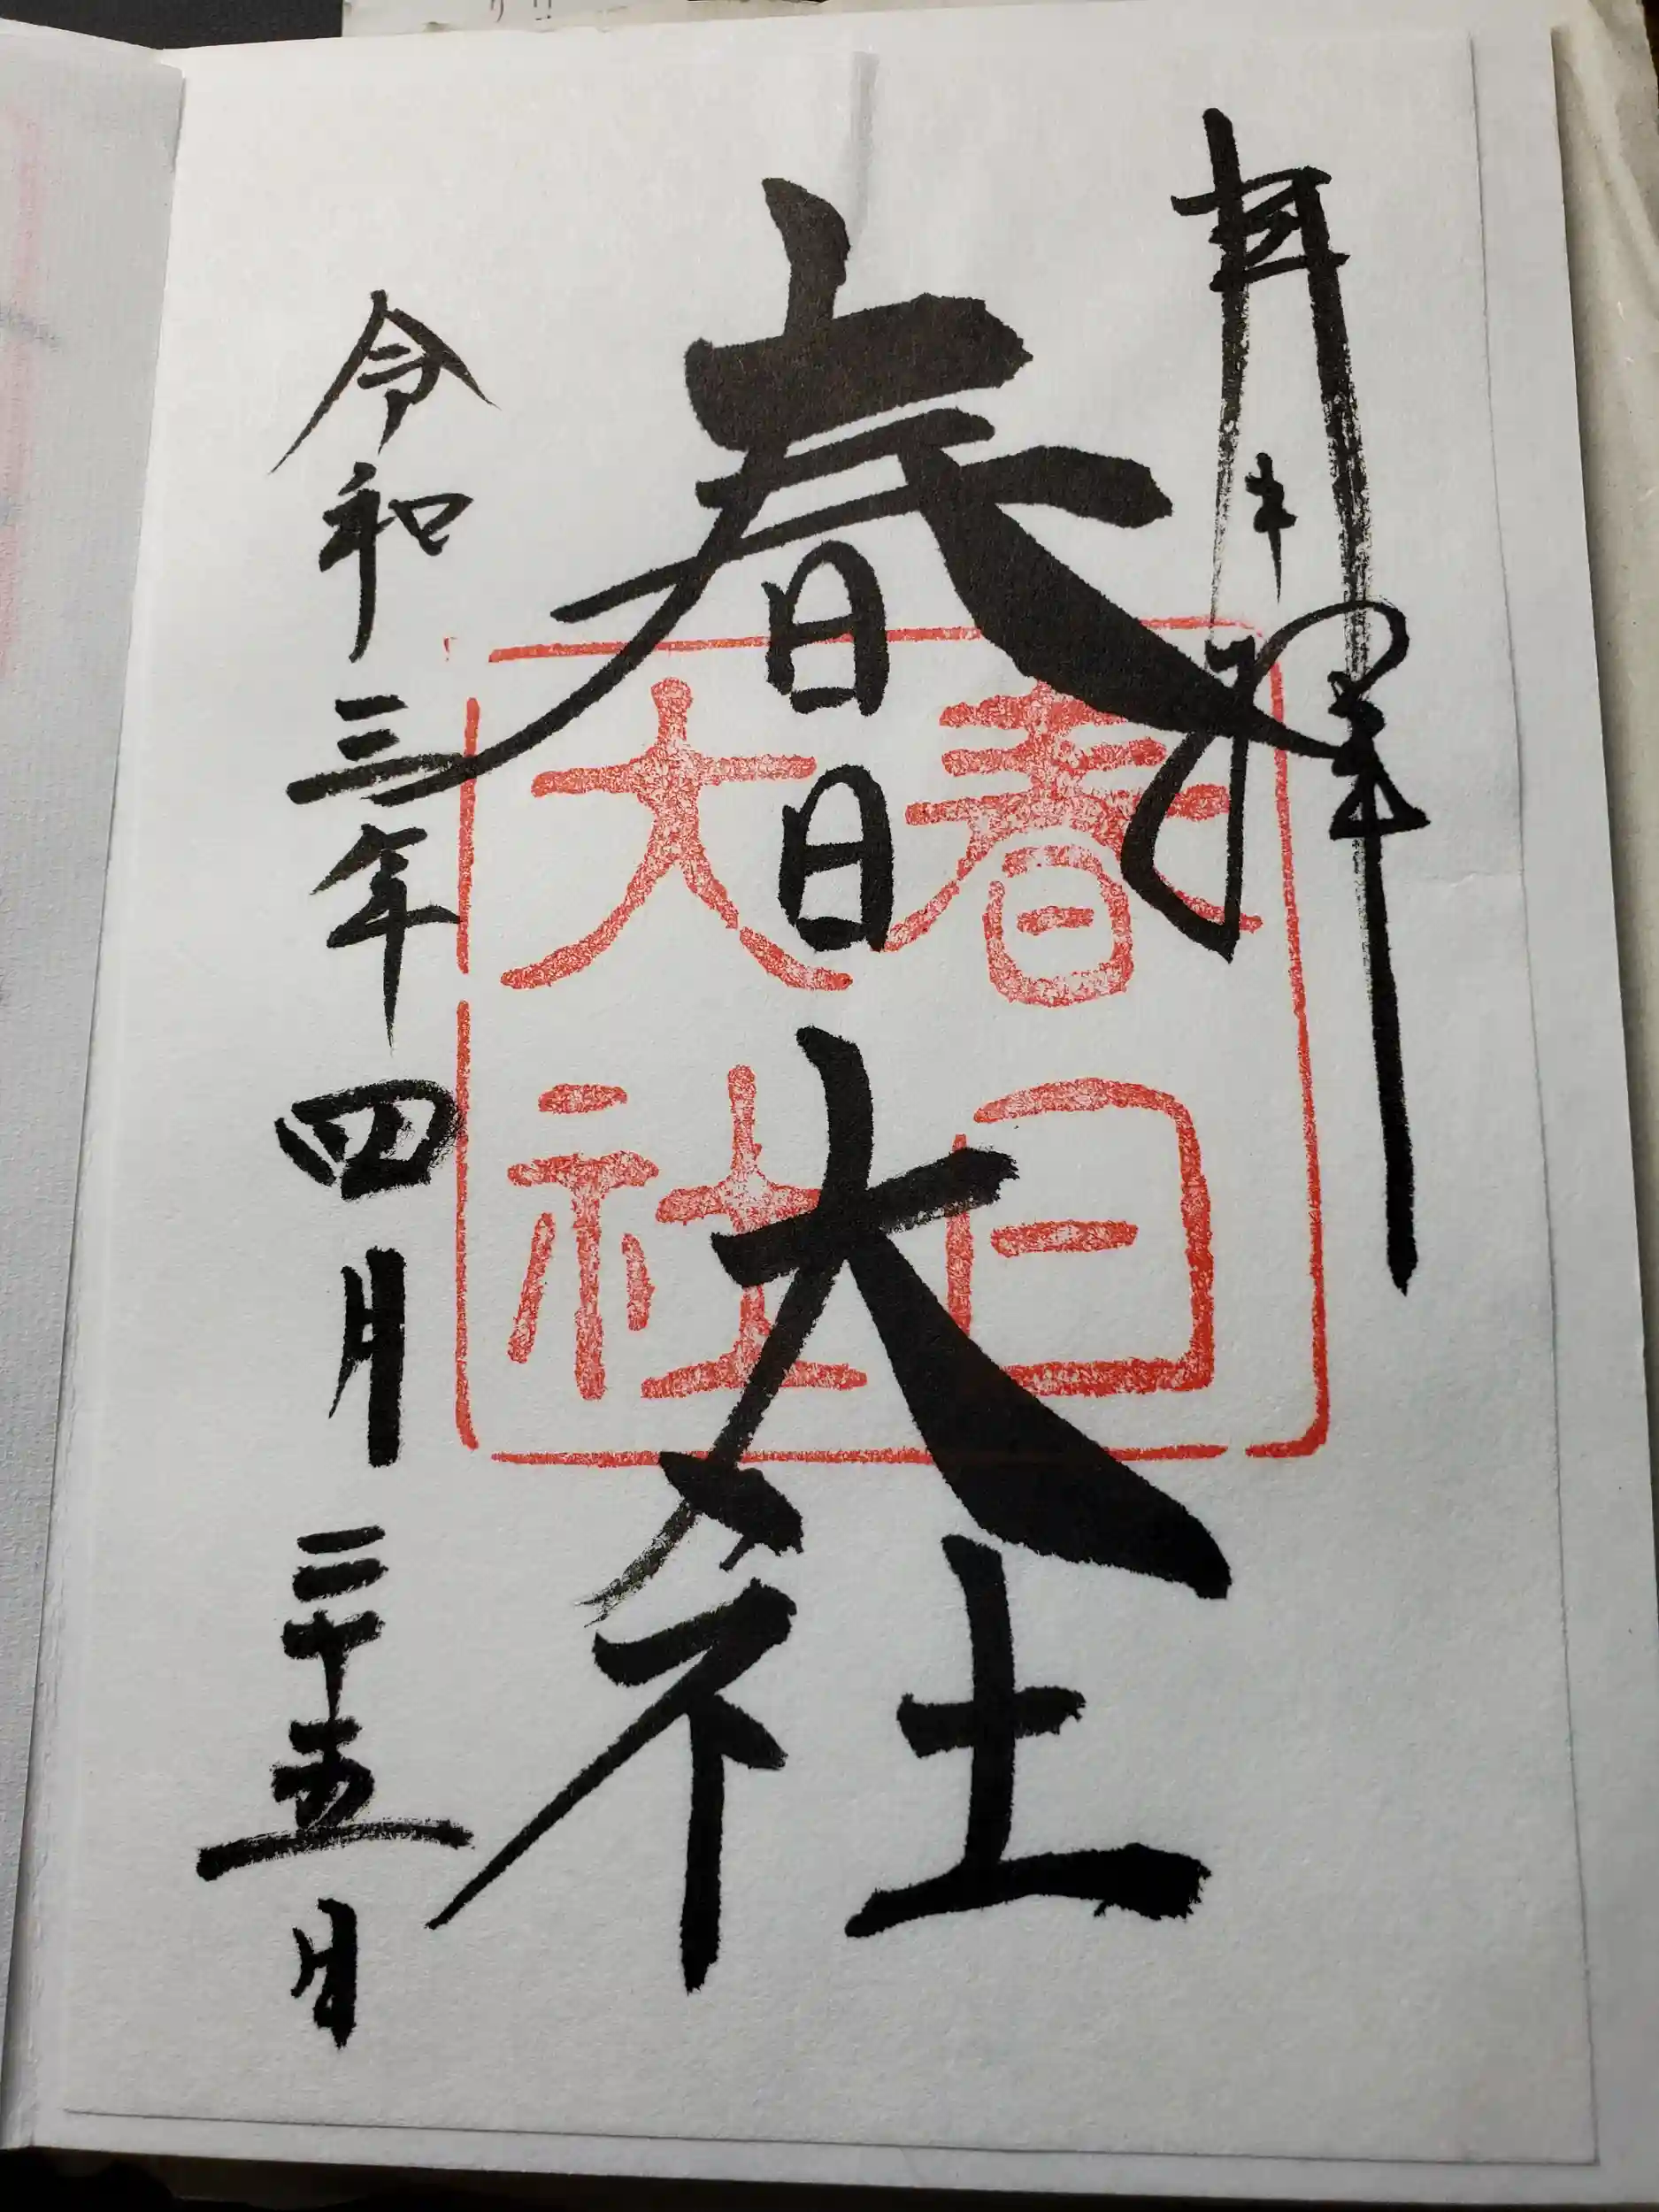 奉拝
春日大社
春日
大社
令和三年四月二十五日